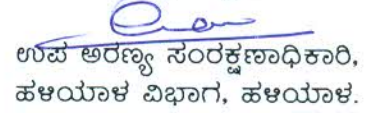 ಉಪ ಅರಣ್ಯ ಸಂರಕ್ಷಣಾಧಿಕಾರಿ,
ಹಳಿಯಾಳ ವಿಭಾಗ, ಹಳಿಯಾಳ.